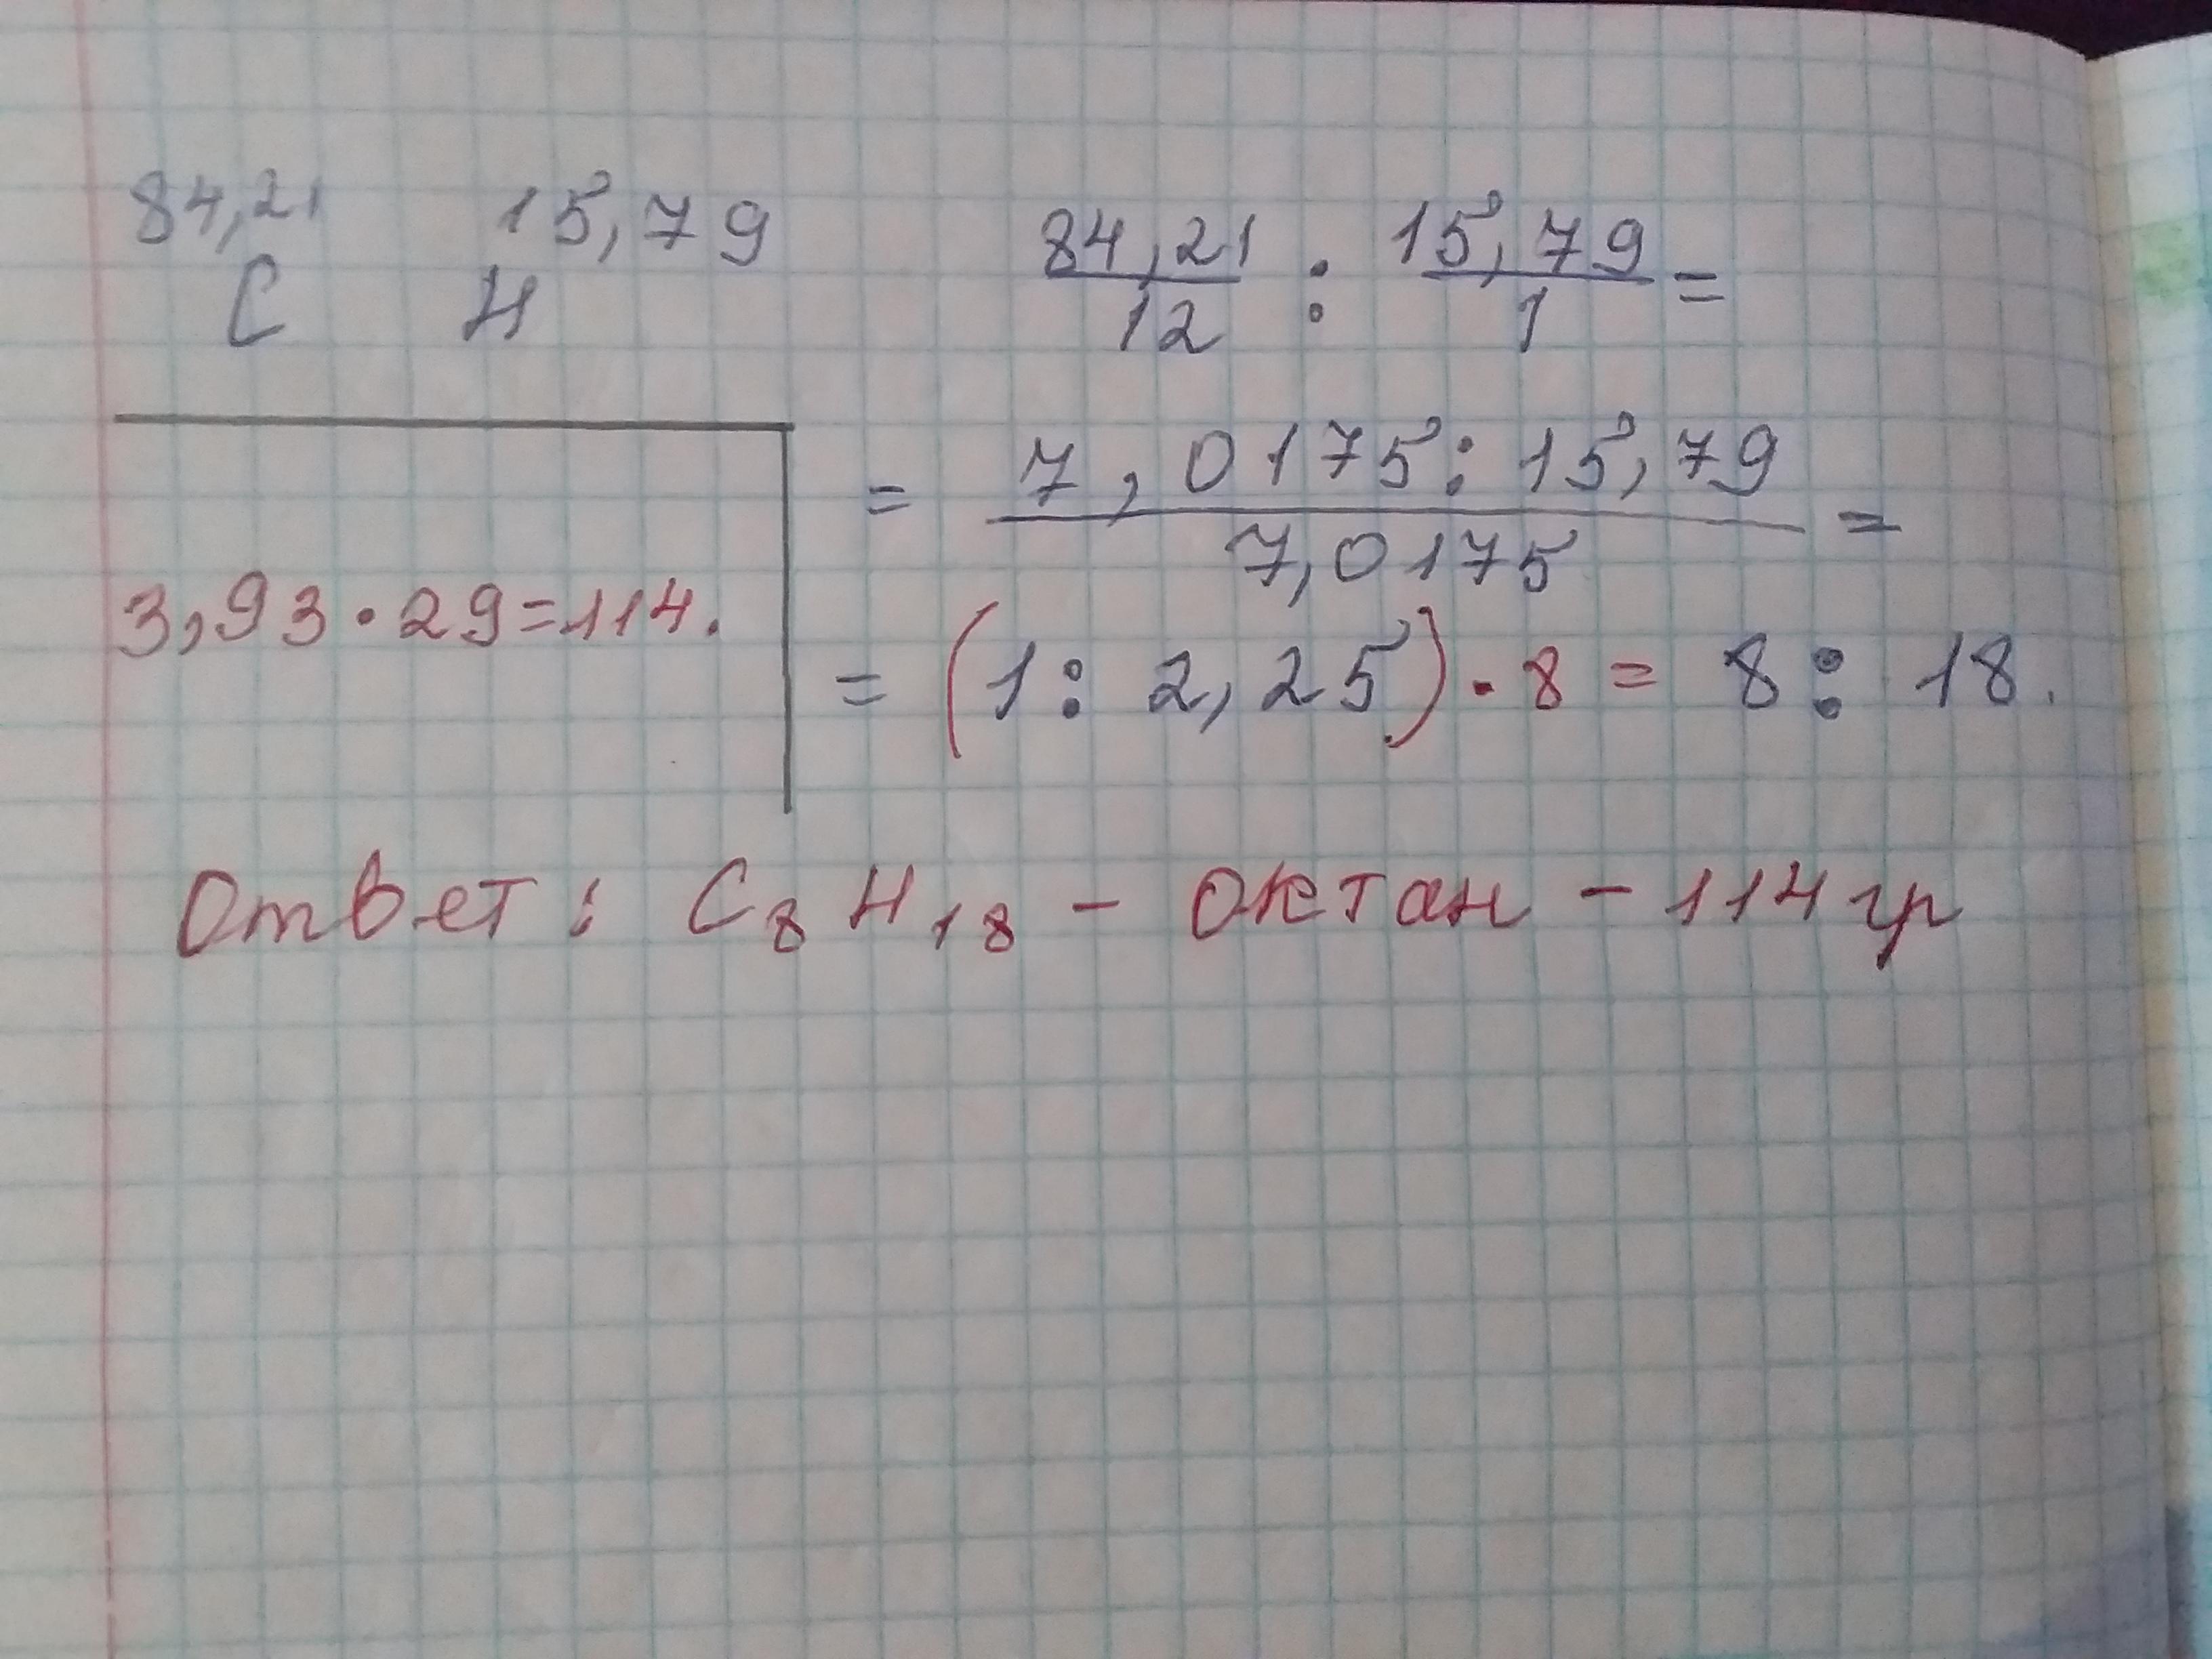 84,21 15,79
C H
84,21/12 : 15,79/1 =
= 7,0175 : 15,79 / 7,0175 =
3,93 · 29 = 114.
= (1 : 2,25) · 8 = 8 : 18.
Ответ : C₈H₁₈ - октан - 114 гр